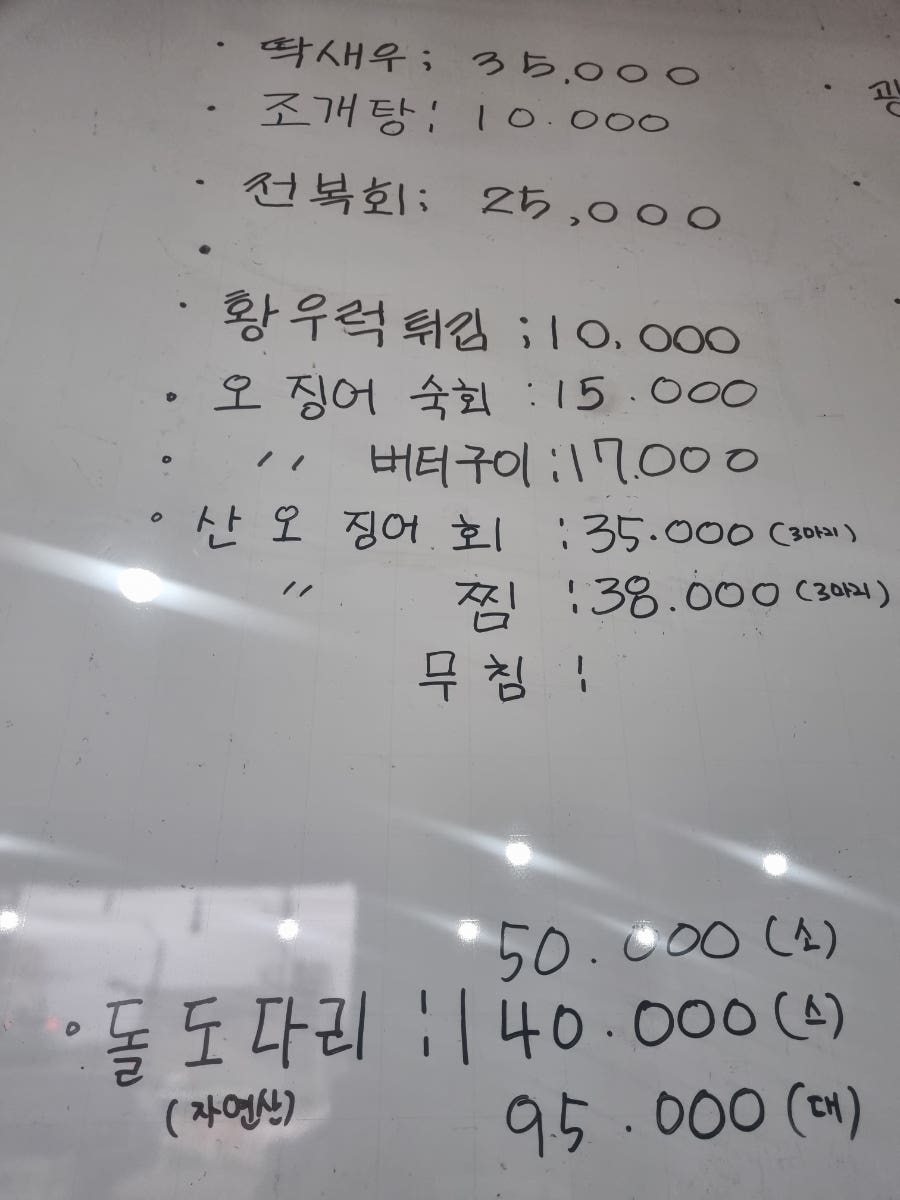 · 딱새우; 35,000
· 조개탕: 10.000
· 전복회: 25,000
·
· 황우럭튀김 ; 10,000
· 오징어 숙회 : 15.000
· 〃 버터구이 : 17.000
· 산오징어 회 : 35.000 (3마리)
〃 찜 : 38.000 (3마리)
무침 :
50.000 (소)
· 돌도다리 : 140.000 (스)
(자연산)
95.000 (대)